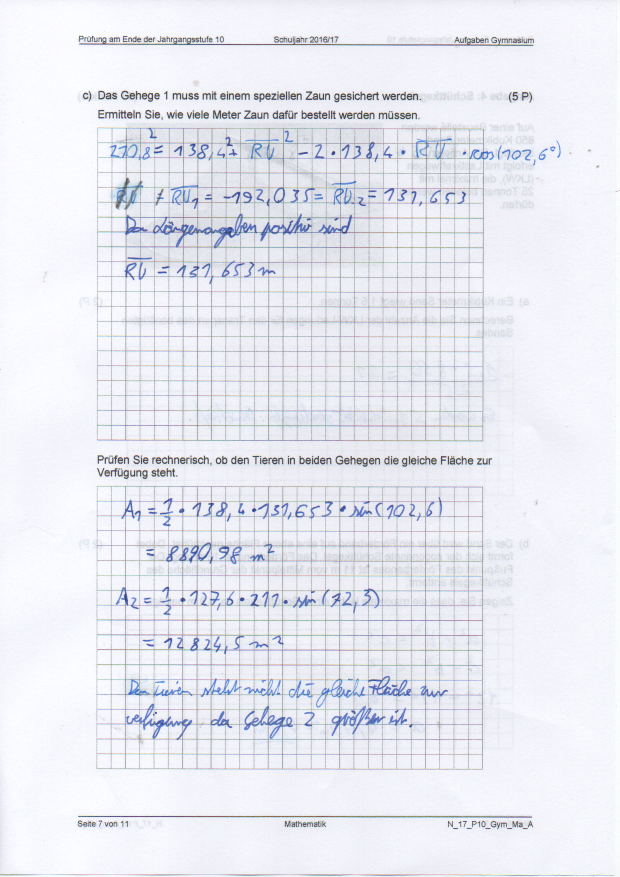 Prüfung am Ende der Jahrgangsstufe 10 Schuljahr 2016/17 Aufgaben Gymnasium
c) Das Gehege 1 muss mit einem speziellen Zaun gesichert werden. (5 P)
Ermitteln Sie, wie viele Meter Zaun dafür bestellt werden müssen.
210,8² = 138,4² + RU² − 2 · 138,4 · RU · cos(102,6°)
RU₁ = −192,035 = RU₂ = 131,653
Da Längenangaben positiv sind
RU = 131,653 m
Prüfen Sie rechnerisch, ob den Tieren in beiden Gehegen die gleiche Fläche zur
Verfügung steht.
A₁ = 1/2 · 138,4 · 131,653 · sin(102,6)
= 8890,98 m²
A₂ = 1/2 · 127,6 · 211 · sin(72,3)
= 12824,5 m²
Den Tieren steht nicht die gleiche Fläche zur
verfügung da Gehege 2 größer ist.
Seite 7 von 11 Mathematik N_17_P10_Gym_Ma_A